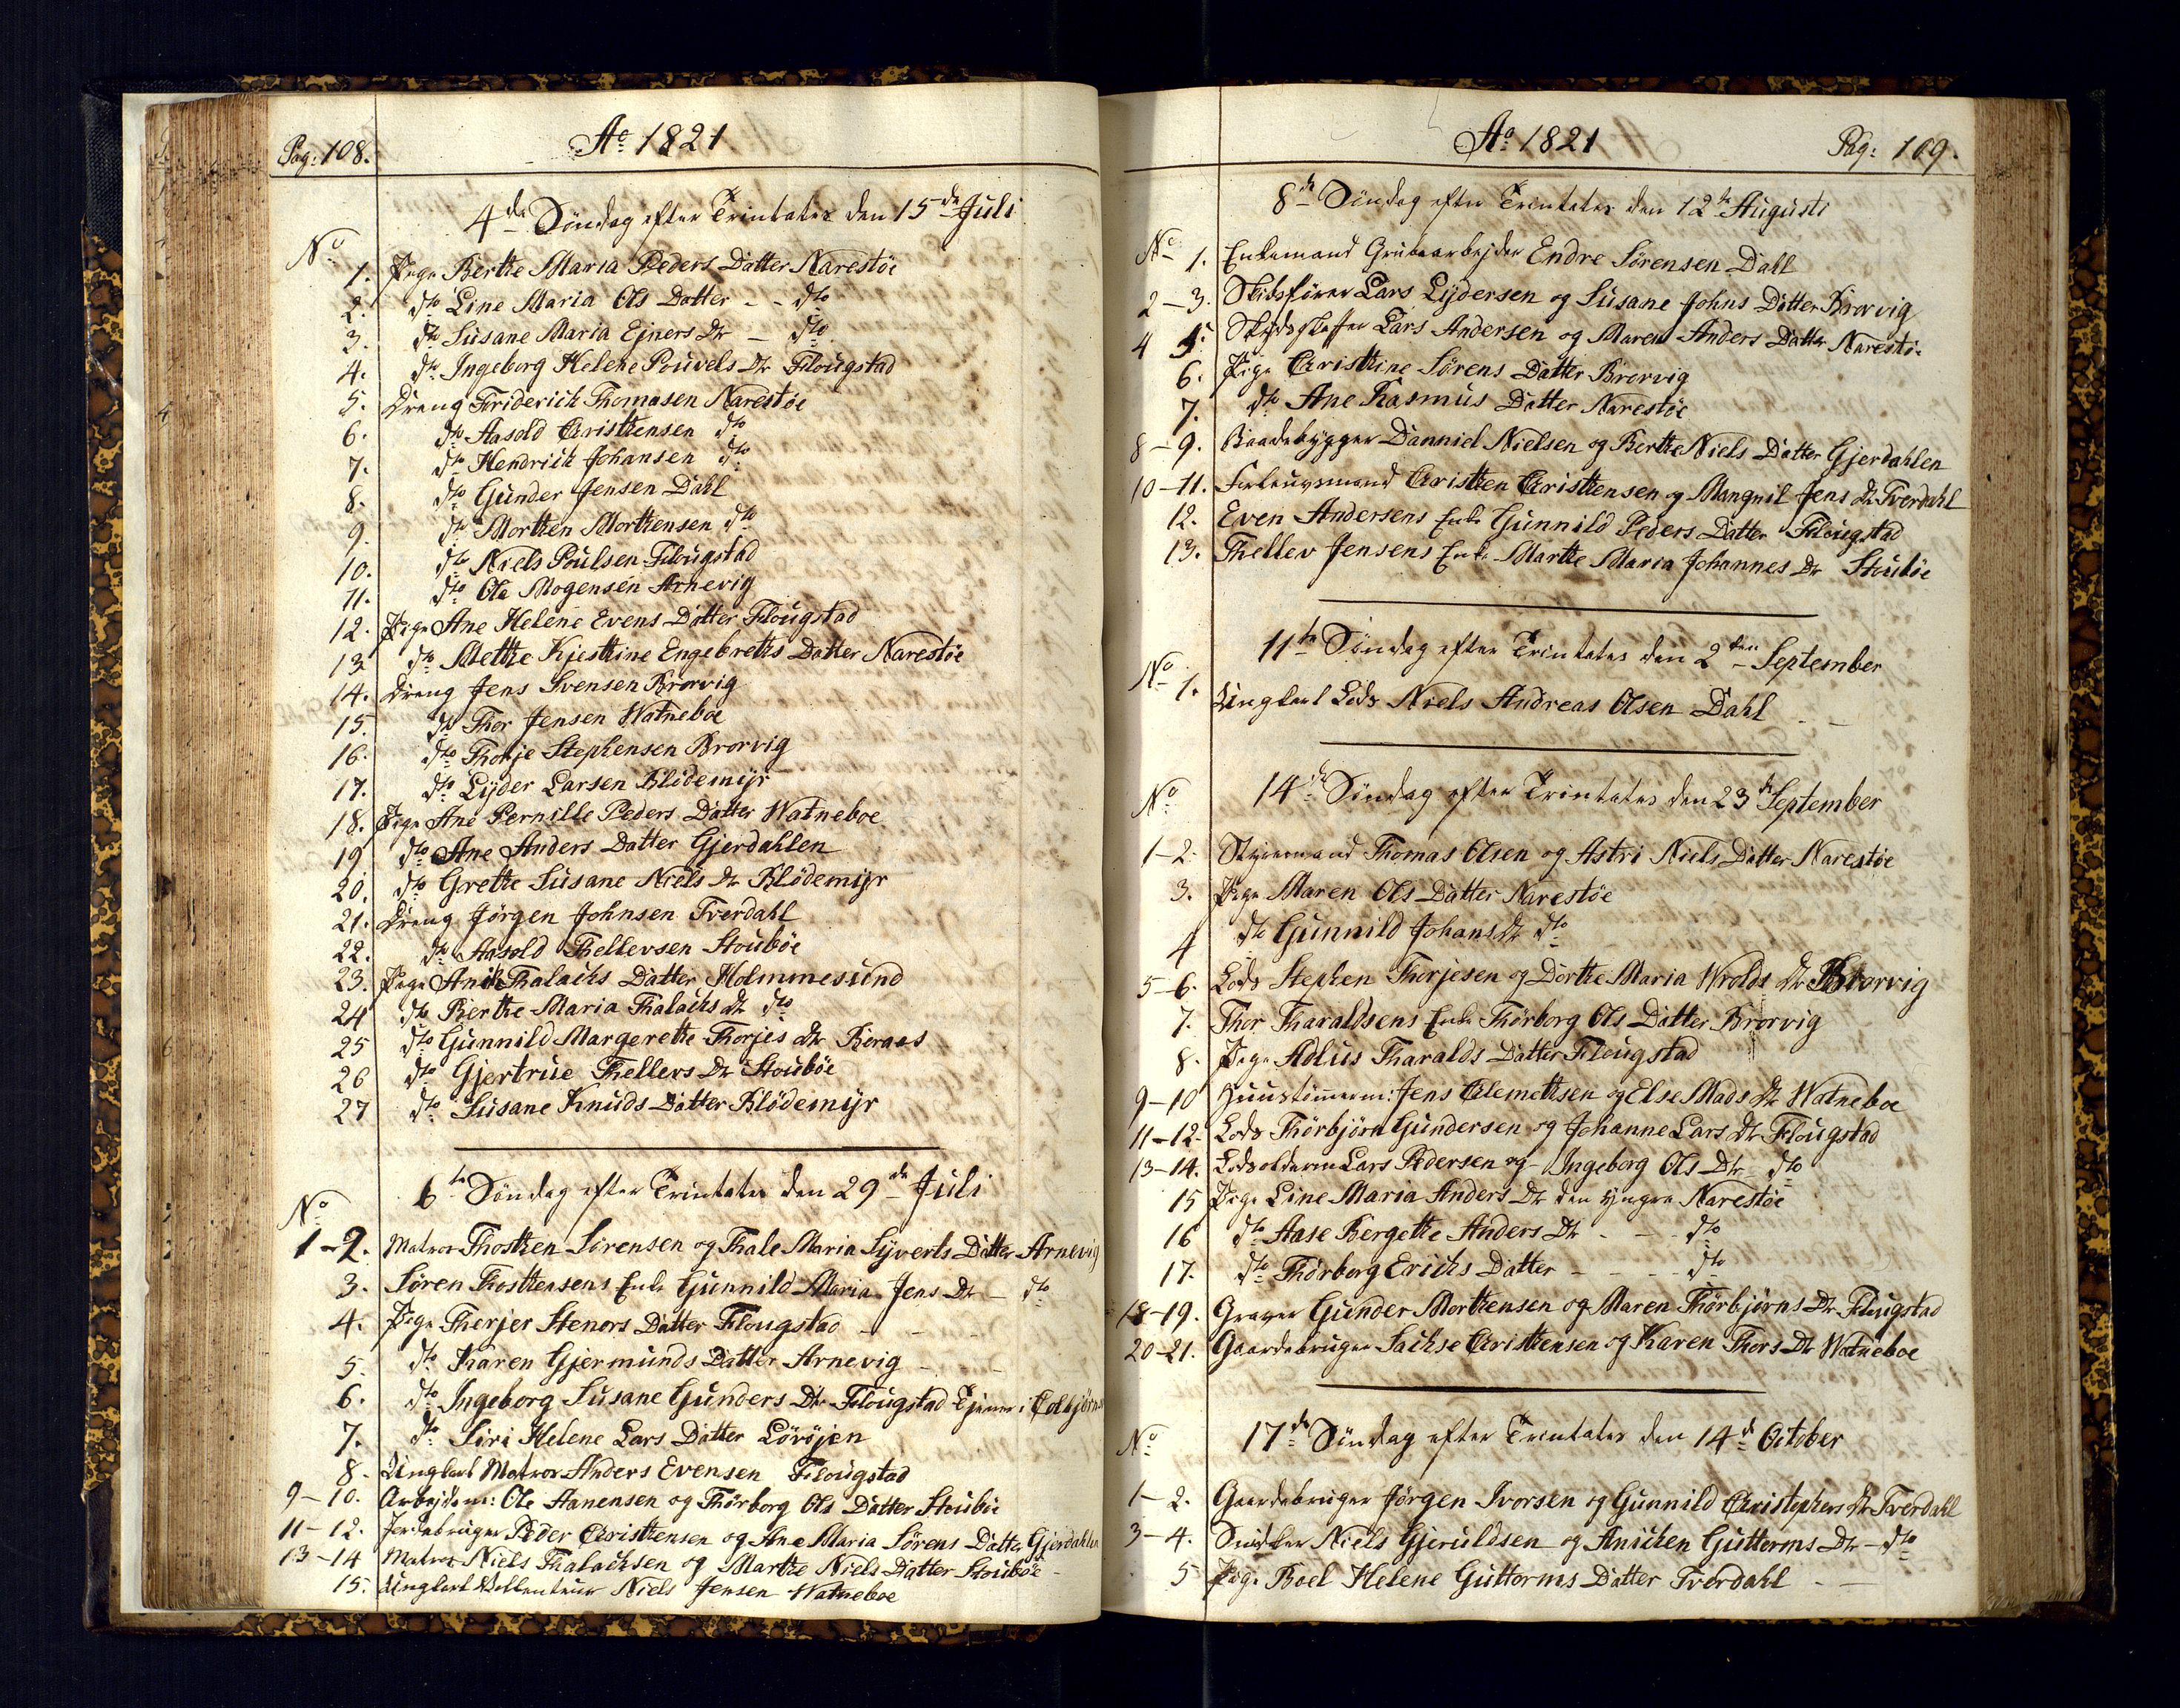 Pag: 108.
Ao 1821
4de Söndag efter Trinitates den 15de Juli
No
1. Pige Berthe Maria Peders Datter Narestöe
2. dto Line Maria Ols Datter - - dto
3. dto Susane Maria Ejners Dtr - dto
4. dto Ingeborg Helene Pouvels Dtr Flougstad
5. Dreng Friderich Thomasen Narestöe
6. dto Aasold Christhensen dto
7. dto Hendrich Johansen dto
8. dto Gunder Jensen Dahl
9. dto Morthen Morthensen dto
10. dto Niels Poulsen Flougstad
11. dto Ole Mogensen Arnevig
12. Pige Ane Helene Evens Datter Flougstad
13 dto Methe Kjesthine Engebreths Datter Narestöe
14. Dreng Jens Svensen Brorvig
15. dto Thor Jensen Watneboe
16. dto Thorje Stephensen Brorvig
17. dto Lyder Larsen Blödemyr
18. Pige Ane Pernille Peders Datter Watneboe
19 dto Ane Anders Datter Gjerdahlen
20. dto Grethe Susane Niels Dtr Blödemyr
21. Dreng Jørgen Johnsen Tverdahl
22. dto Aasold Thellevsen Stoubøe
23. Pige Anne Thalachs Datter Holmmesund
24 dto Berthe Maria Thalachs Dtr dto
25 dto Gunnild Margerethe Thorjes Dtr Boraas
26 dto Gjertrue Thellevs Dtr Stoubøe
27 dto Susane Knuds Datter Blödemyr
6te Söndag efter Trinitates den 29de Juli
No
1-2. Matros Thosthen Sörensen og Thale Maria Syverts Datter Arnevig
3. Søren Thosthensens Enke Gunnild Maria Jens Dtr - dto
4. Pige Therjer Stenors Datter Flougstad - - -
5. dto Karen Gjermunds Datter Arnevig - -
6. dto Ingeborg Susane Gunders Dtr Flougstad Tjener i Colbjörns
7. dto Siri Helene Lars Datter Lövöjen
8. Ungkarl Matros Anders Evensen Flougstad
9-10. Arbejdsm: Ole Aanensen og Thörborg Ols Datter Stoubøe
11-12. Jordebruger Peder Christhensen og Ane Maria Sørens Datter Gjerdahlen
13-14 Matros Niels Thalachsen og Marthe Niels Datter Stoubøe -
15. Ungkarl Vollenteur Niels Jensen Watneboe
Ao 1821
Pag: 109.
8de Söndag efter Trinitates den 12te Augusti
No
1. Enkemand Grubearbejder Endre Sørensen Dahl
2-3. Skibsfører Lars Lydersen og Susane Johns Datter Brorvig
4 5. Skydsskaffer Lars Andersen og Maren Anders Datter Narestöe
6. Pige Christhine Sørens Datter Brorvig
7. dto Ane Rasmus Datter Narestöe
8-9. Baadebygger Danniel Nielsen og Berthe Niels Datter Gjerdahlen
10-11. Forleugsmand Christhen Christhensen og Mangnil Jens Dtr Tverdahl
12. Even Andersens Enke Gunnild Peders Datter Flougstad
13. Thellev Jensens Enke Marthe Maria Johannes Dtr Stoubøe
11te Söndag efter Trinitates den 2den September
No
1. Ungkarl Lods Niels Andreas Olsen Dahl - -
14de Söndag efter Trinitates den 23de September
No
1-2. Styrmand Thomas Olsen og Astri Niels Datter Narestöe
3. Pige Maren Ols Datter Narestöe
4 dto Gunnild Johans Dtr dto
5-6. Lods Stephen Thorjesen og Dorthe Maria Wrolds Dtr Brorvig
7. Thor Tharaldsens Enke Thörborg Ols Datter Brorvig
8. Pige Adlus Tharalds Datter Flougstad
9-10 Huustimerm: Jens Clemethsen og Else Mads Dtr Watneboe
11-12. Lods Thörbjörn Gundersen og Johanne Lars Dtr Flougstad
13-14. Lodsolderm Lars Pedersen og Ingeborg Ols Dtr dto
15 Pige Line Maria Anders Dtr den yngre Narestöe
16 dto Aase Bergethe Anders Dtr - - - dto
17. dto Thörborg Erichs Datter - - - - dto
18-19. Graver Gunder Morthensen og Maren Thörbjörns Dtr Flougstad
20-21. Gaardebruger Sachse Christhensen og Karen Thors Dtr Watneboe
17de Söndag efter Trinitates den 14de October
No
1-2. Gaardebruger Jörgen Ivorsen og Gunnild Christophers Dtr Tverdahl
3-4. Snidker Niels Gjeruldsen og Anichen Gutterms Dtr - dto
5 Pige Boel Helene Guttorms Datter Tverdahl - -